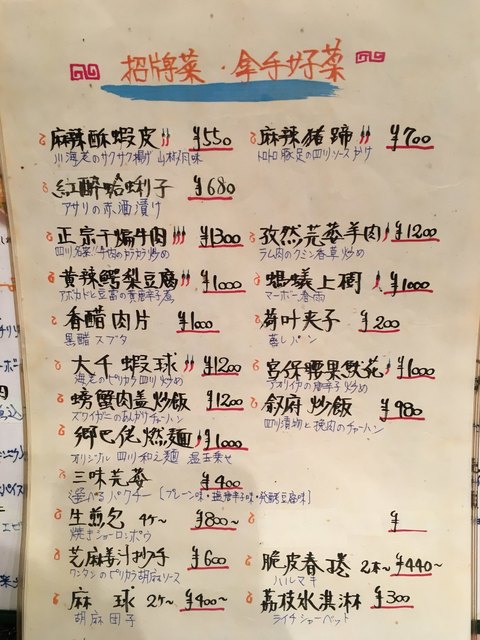 招牌菜・拿手好菜
麻辣酥蝦皮 ¥550
川海老のサクサク揚げ 山椒風味
麻辣猪蹄 ¥700
トロトロ豚足の四川ソースかけ
紅醉蛤蜊子 ¥680
アサリの赤酒漬け
正宗干煸牛肉 ¥1300
四川名菜!牛肉のカラカラ炒め
孜然芫荽羊肉 ¥1200
ラム肉のクミン香草炒め
黄辣鰐梨豆腐 ¥1000
アボカドと豆富の黄唐辛子煮
螞蟻上樹 ¥1000
マーボー春雨
香醋肉片 ¥1000
黒醋スブタ
荷叶夹子 ¥200
蒸しパン
大千蝦球 ¥1200
海老のピリカラ四川炒め
宮保腰果魷花 ¥1000
アオリイカの唐辛子炒め
螃蟹肉盖炒飯 ¥1200
ズワイガニのあんかけチャーハン
叙府炒飯 ¥980
四川漬物と挽肉のチャーハン
郷巴佬燃麺 ¥1000
オリジナル 四川和え麺 温玉乗せ
三味芫荽 ¥400
選べるパクチー [プレーン味・塩唐辛子味・発酵豆腐味]
生煎包 4ケ~ ¥800~
焼きショーロンポウ
¥
芝麻姜汁抄手 ¥600
ワンタンのピリカラ胡麻ソース
脆皮春巻 2本~ ¥440~
ハルマキ
麻球 2ケ~ ¥400~
胡麻団子
荔枝氷淇淋 ¥300
ライチシャーベット